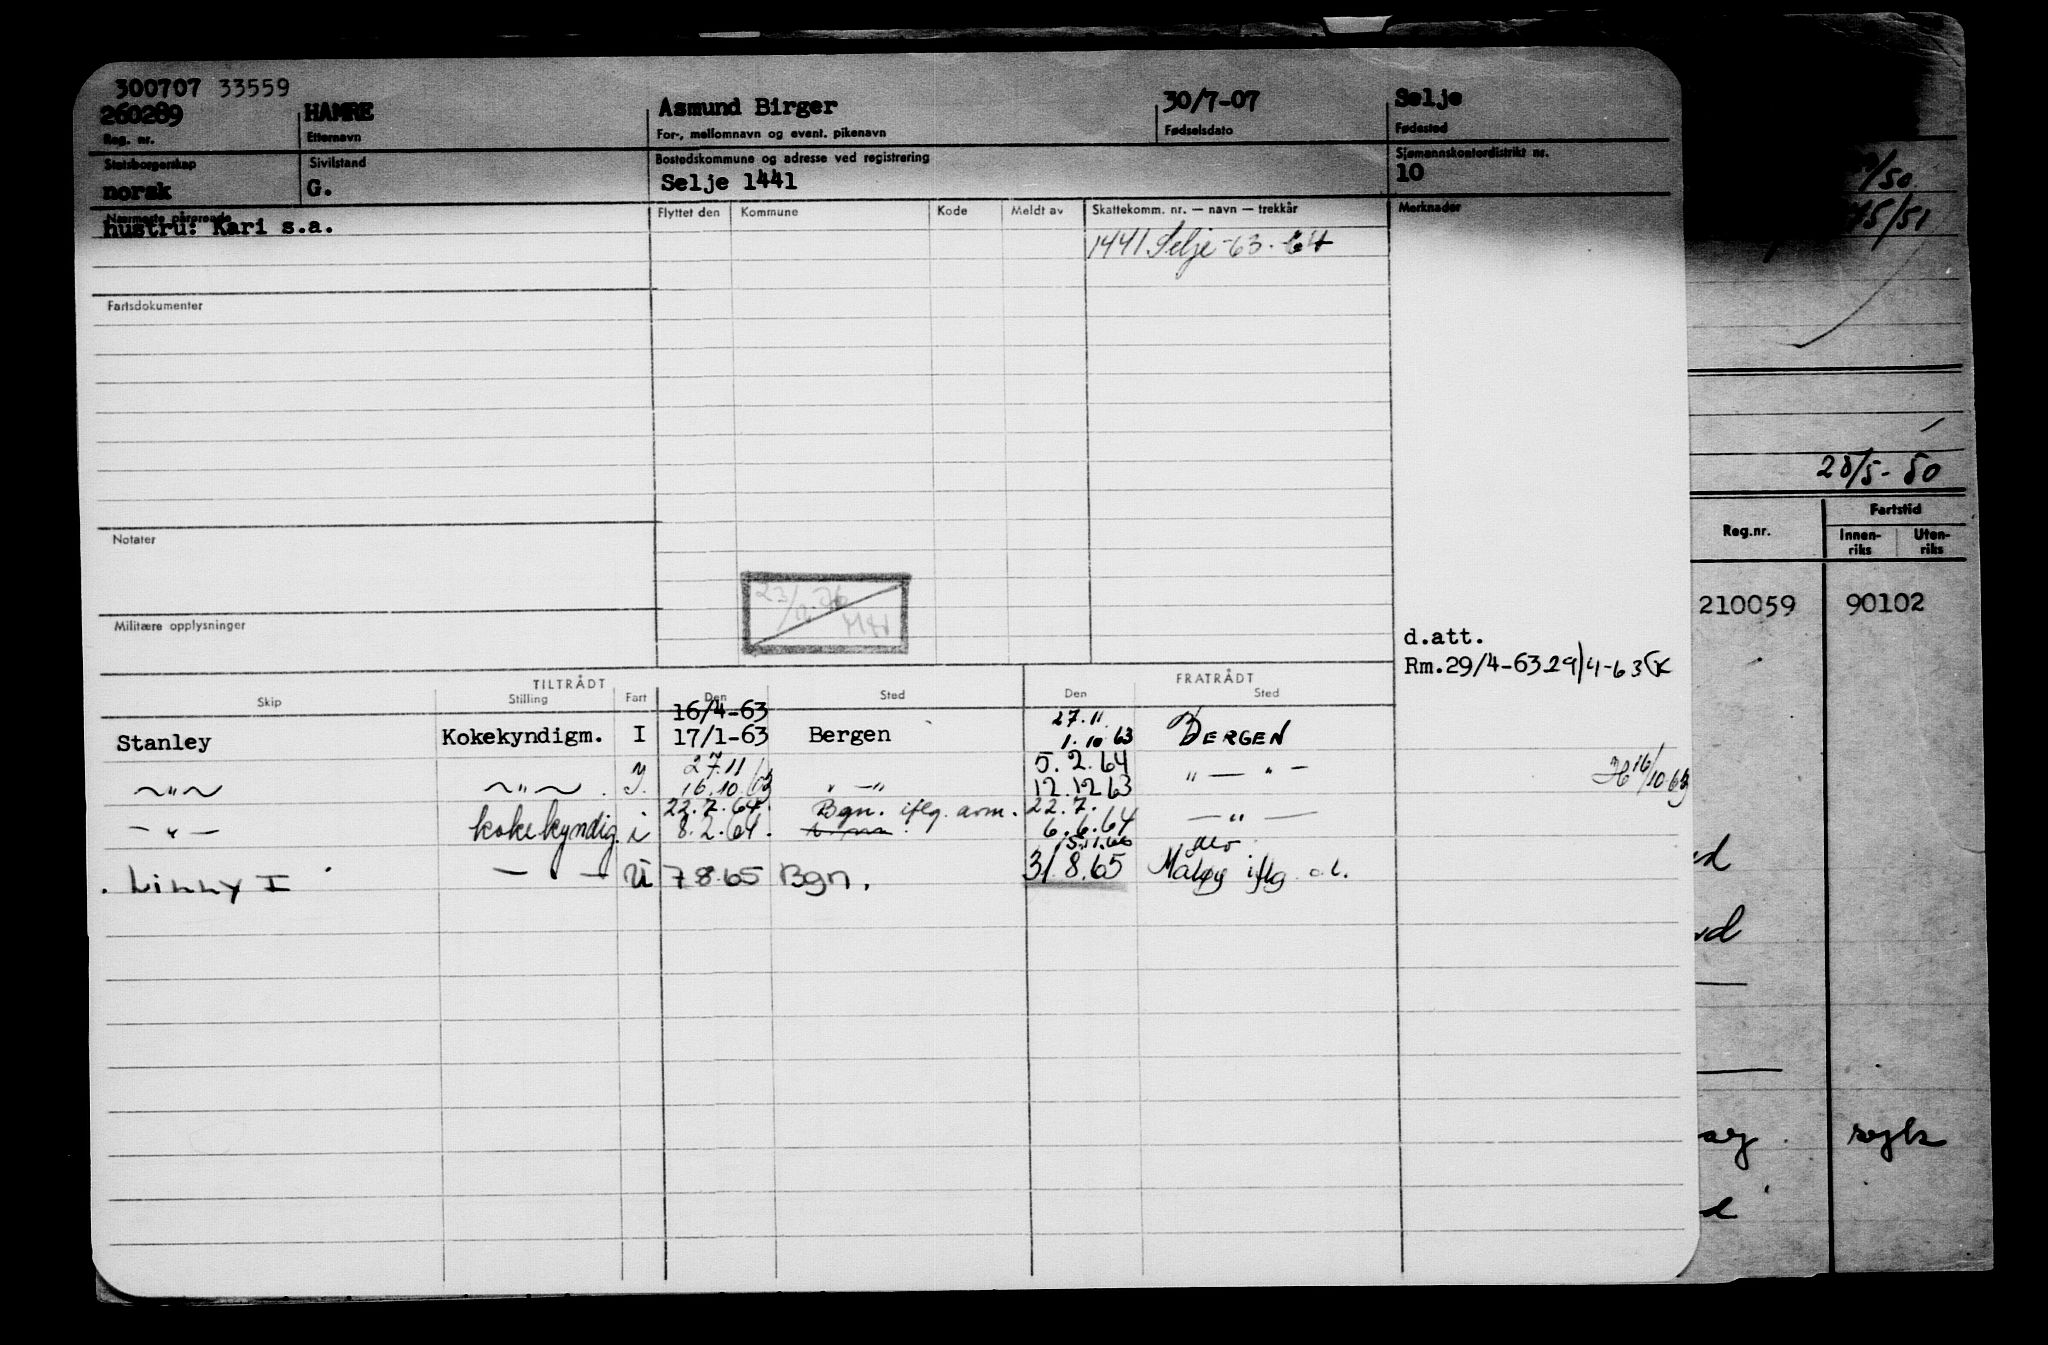 300707 33559
260289 HAMRE Asmund Birger 30/7-07 Selje
Reg. nr. Etternavn For-, mellomnavn og event. pikenavn Fødselsdato Fødested
Statsborgerskap Sivilstand Bostedskommune og adresse ved registrering Sjømannskontordistrikt nr.
norsk G. Selje 1441 10
Nærmeste pårørende Flyttet den Kommune Kode Meldt av Skattekomm. nr. — navn — trekkår Merknader
hustru: Kari s.a.
1441 Selje -63-64
Fartsdokumenter
Notater
23/12-76
Militære opplysninger
d.att.
Rm.29/4-63 29/4-63
TILTRÅDT FRATRÅDT
Skip Stilling Fart Den Sted Den Sted
16/4-63 27.11
Stanley Kokekyndigm. I 17/1-63 Bergen 1.10 63 BERGEN
27.11 5.2.64
—"— —"— . I. 16.10.63 " —" 12.12 63 " — " — H 16/10-63
22.7.64. Bgn. iflg. arm. 22.7.
— " — kokekyndig. i 8.2.64. 6.6.64 — " —
5.11.66
. LILLY I — — U 7 8.65 Bgn. 31.8.65 Måløy iflg
/50
15/51
28/5-50
Reg.nr. Fartstid
Innen-riks Uten-riks
210059 90102